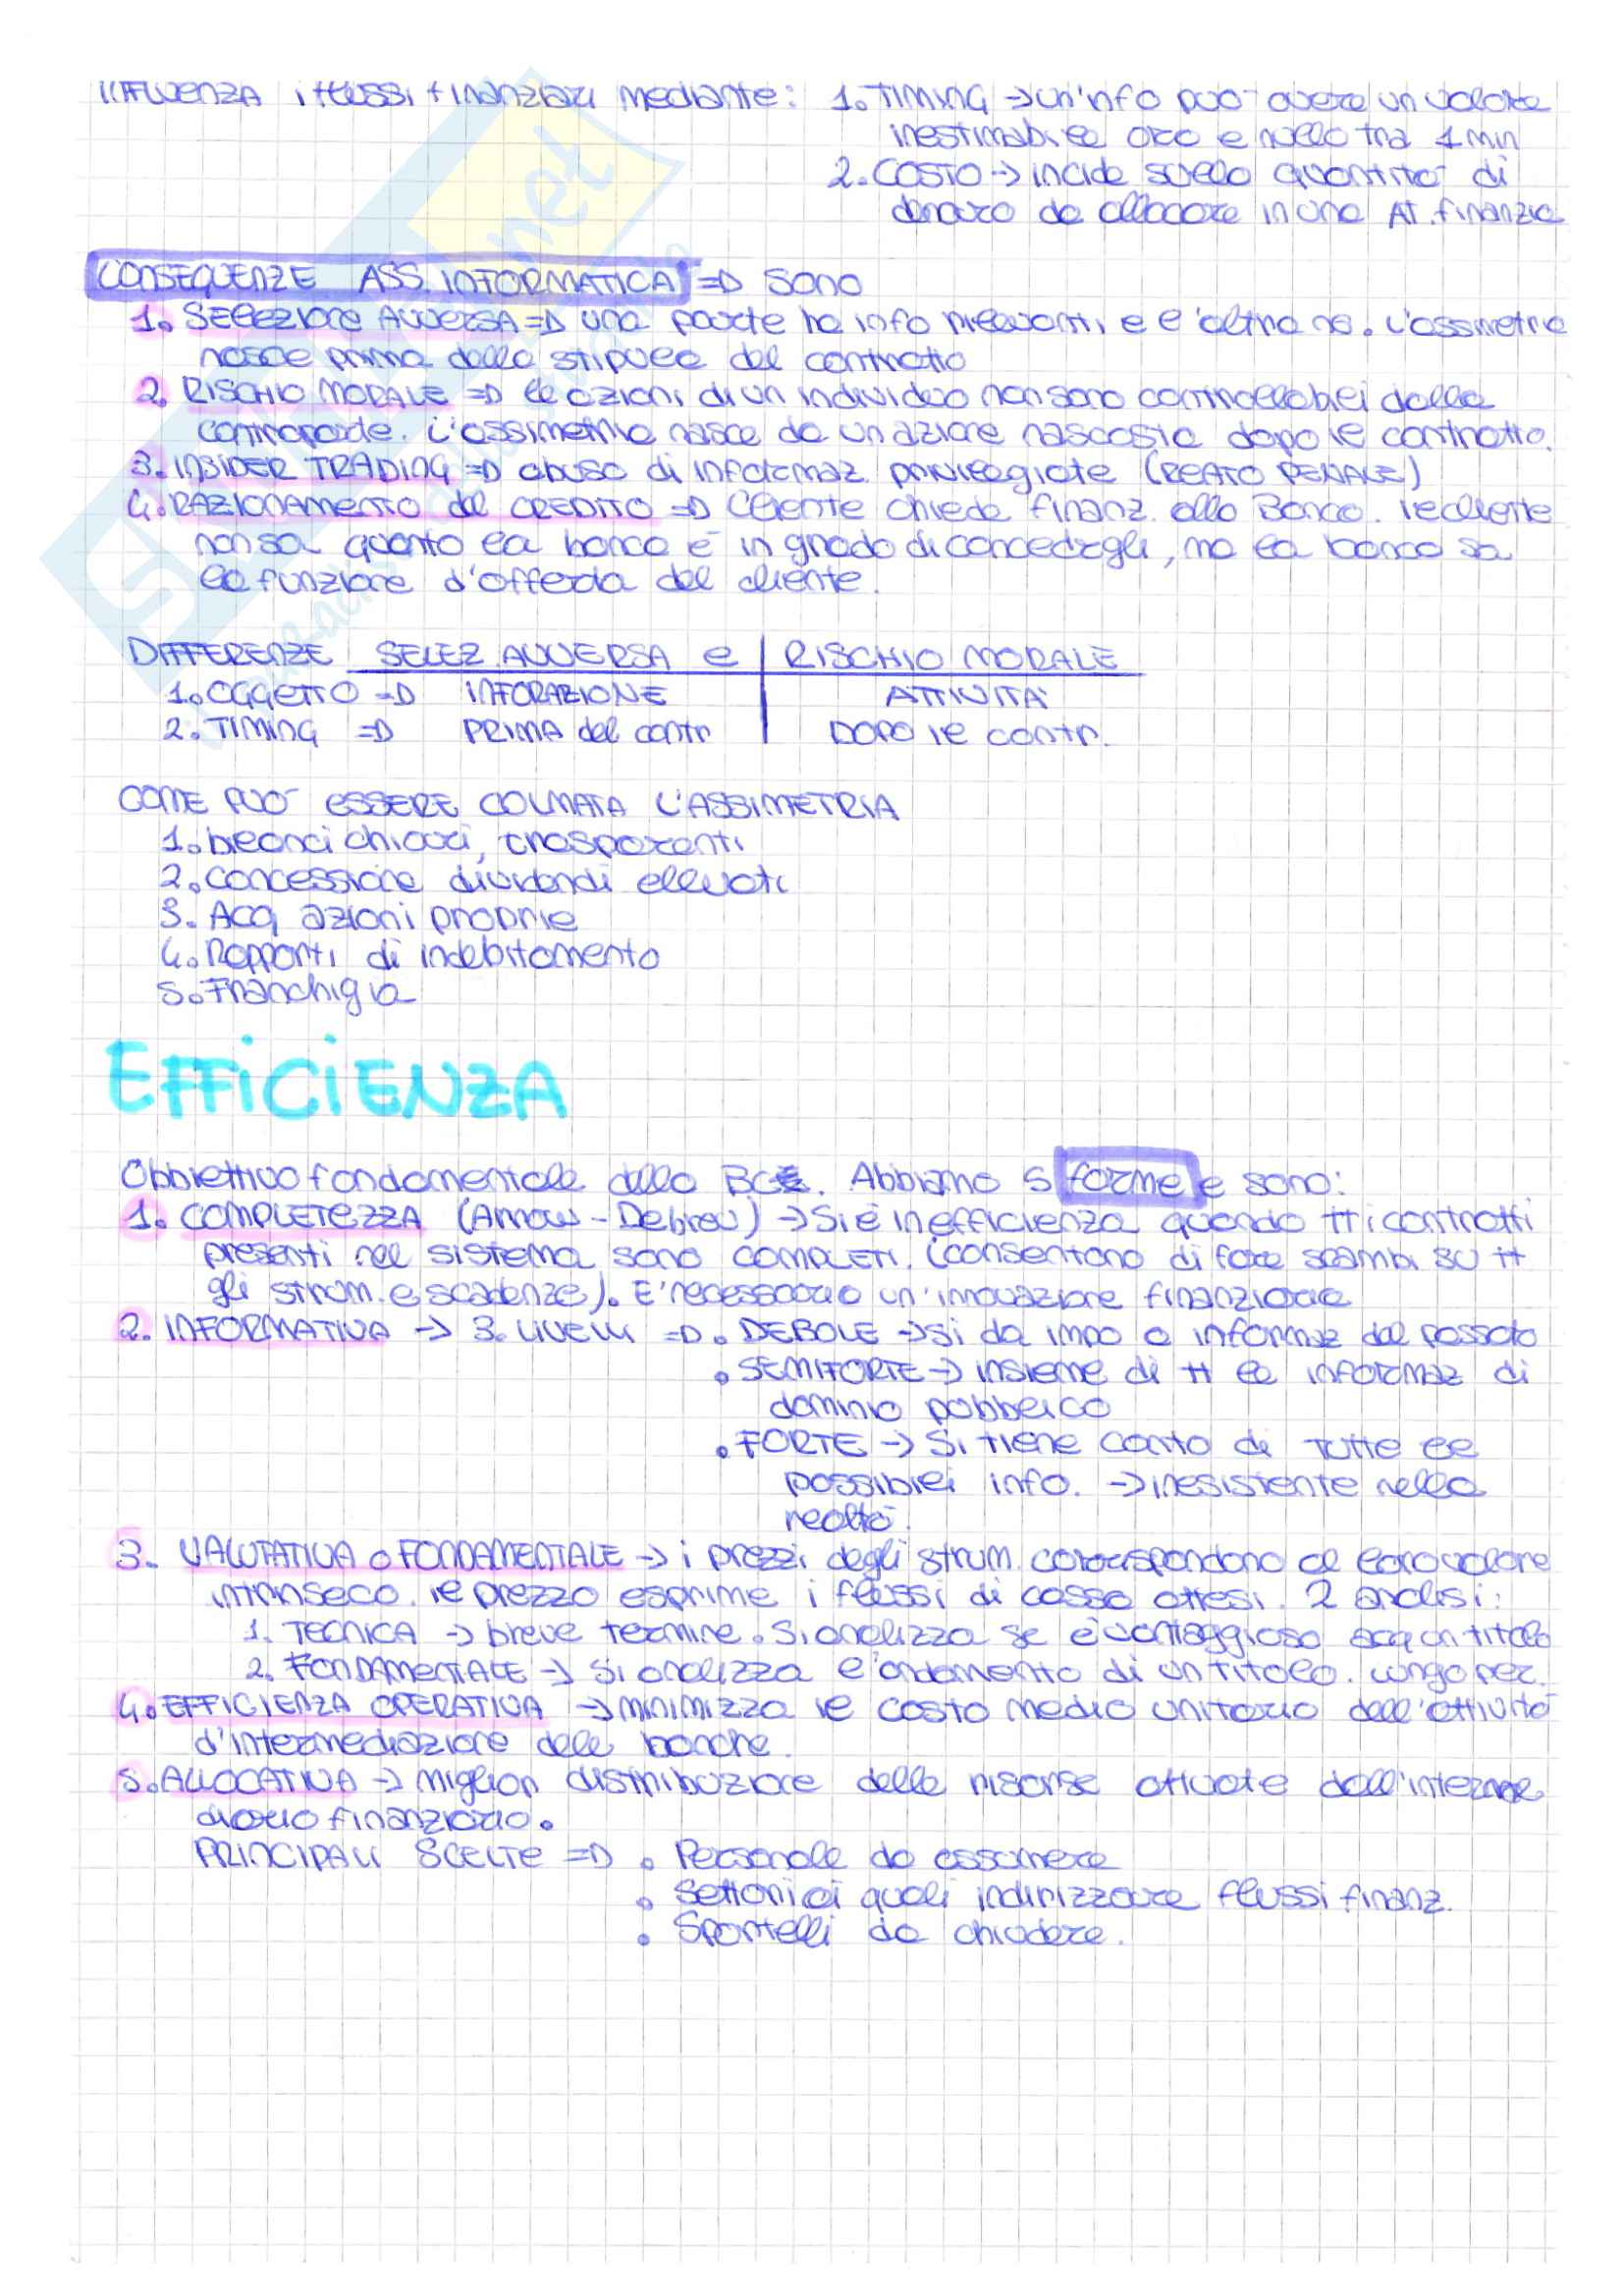 INFLUENZA i flussi finanziari mediante: 1. TIMING → un'info può avere un valore
inestimabile ora e nullo tra 1 min
2. COSTO → incide sulla quantità di
denaro da allocare in una AT. finanzia
CONSEGUENZE ASS. INFORMATICA => SONO
1. SELEZIONE AVVERSA => una parte ha info rilevanti, e l'altra no. L'assimetria
nasce prima della stipula del contratto
2. RISCHIO MORALE => le azioni di un individuo non sono controllabili dalla
controparte. L'assimetria nasce da un azione nascosta dopo il contratto.
3. INSIDER TRADING => abuso di informaz. privilegiate (REATO PENALE)
4. RAZIONAMENTO del CREDITO => Cliente chiede finanz. alla Banca. il cliente
non sa quanto la banca è in grado di concedergli, ma la banca sa
la funzione d'offerta del cliente.
DIFFERENZE SELEZ. AVVERSA e RISCHIO MORALE
1. OGGETTO => INFORAZIONE ATTIVITA'
2. TIMING => PRIMA del contr DOPO il contr.
COME PUO' ESSERE COLMATA L'ASSIMETRIA
1. bilanci chiari, trasparenti
2. concessione dividendi ellevati
3. Acq azioni proprie
4. Rapporti di indebitamento
5. Franchigia
EFFICIENZA
Obbiettivo fondamentale della BCE. Abbiamo 5 forme e sono:
1. COMPLETEZZA (Arrow - Debreu) → Si è in efficienza quando tt i contratti
presenti nel sistema sono COMPLETI. (consentono di fare scambi su tt
gli strum. e scadenze). E' necessario un'innovazione finanziaria
2. INFORMATIVA → 3. LIVELLI => • DEBOLE → si da impo a informaz del passato
• SEMIFORTE → insieme di tt le informaz di
dominio pubblico
• FORTE → Si tiene conto di tutte le
possibili info. → inesistente nella
realtà.
3. VALUTATIVA o FONDAMENTALE → i prezzi degli strum. corrispondono al loro valore
intrinseco. il prezzo esprime i flussi di cassa attesi. 2 analisi:
1. TECNICA → breve termine. Si analizza se è vantaggioso acq un titolo
2. FONDAMENTALE → Si analizza l'andamento di un titolo. Lungo per.
4. EFFICIENZA OPERATIVA → minimizza il costo medio unitario dell'attività
d'intermediazione delle banche.
5. ALLOCATIVA → miglior distribuzione delle risorse attuate dall'interme
diario finanziario.
PRINCIPALI SCELTE => • Personale da assumere
• Settori ai quali indirizzare flussi finanz.
• Sportelli da chiudere.